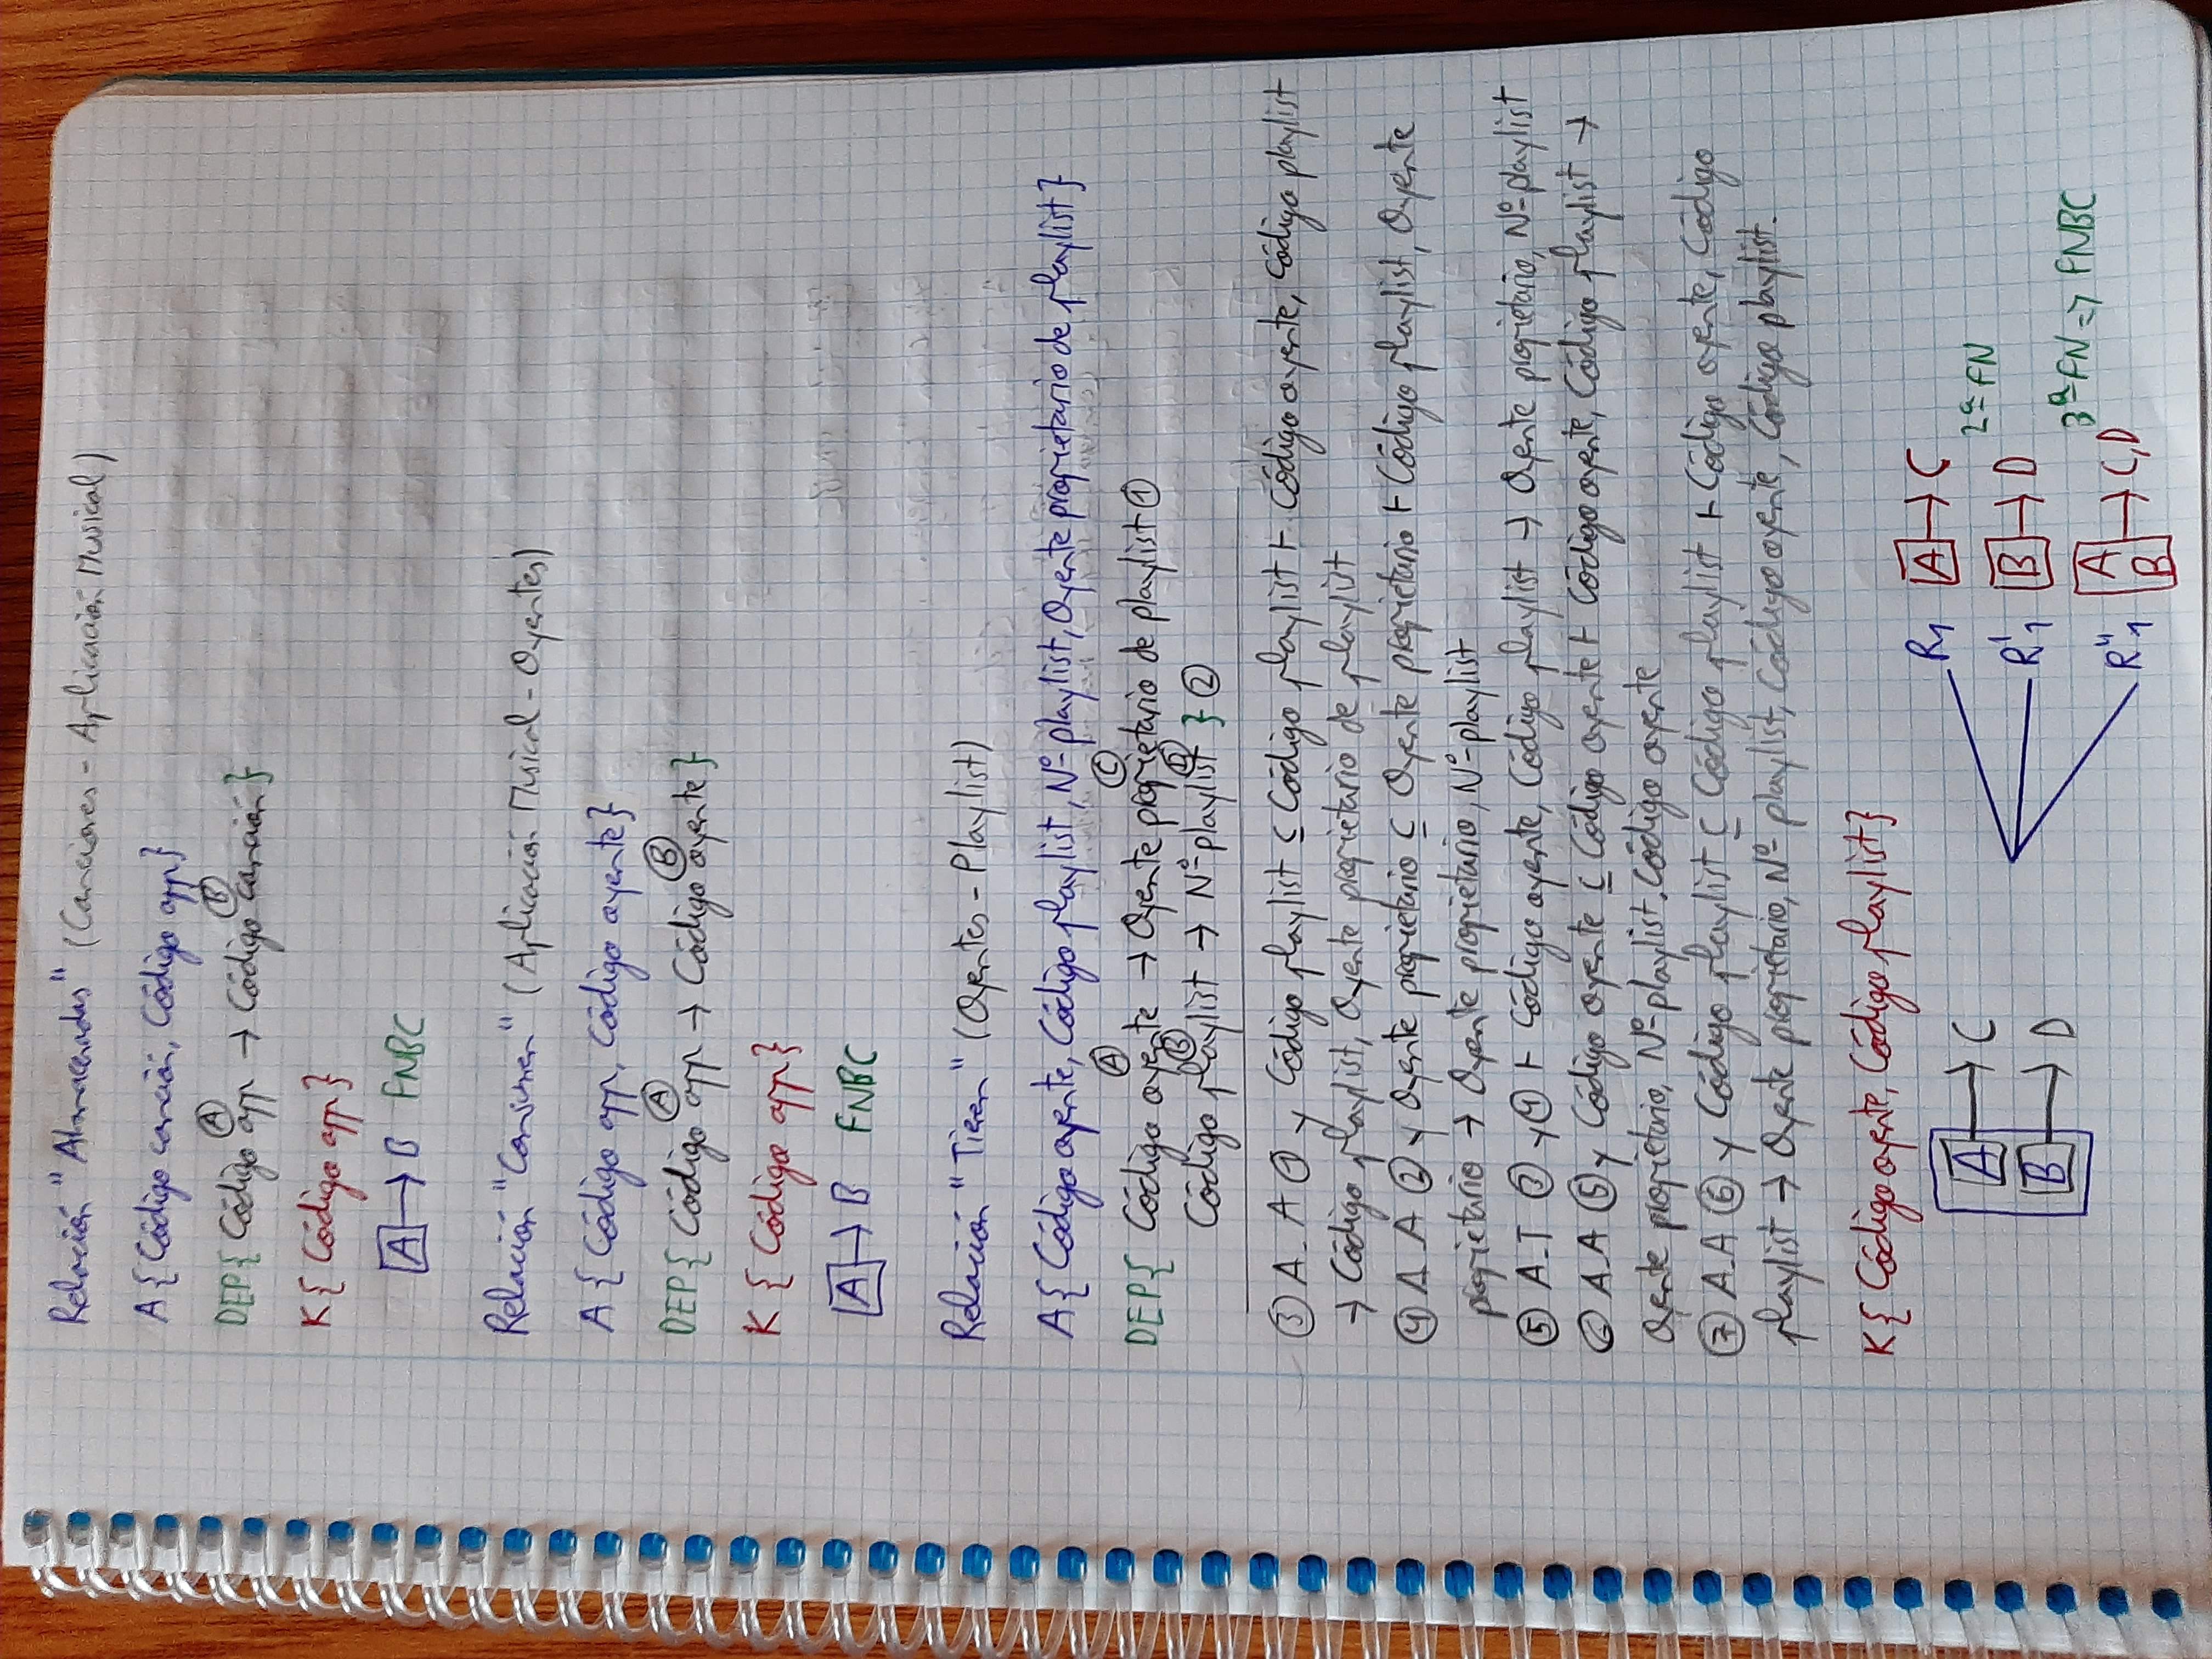 Relación "Almacenadas" (Canciones - Aplicación Musical)
A { Código canción, Código app}
Ⓐ Ⓑ
DEP{ Código app → Código canción}
K{ Código app}
A → B FNBC
Relación "Consumen" (Aplicación Musical - Oyentes)
A { Código app, Código oyente}
Ⓐ Ⓑ
DEP{ Código app → Código oyente}
K { Código app}
A → B FNBC
Relación "Tienen" (Oyentes - Playlist)
A{ Código oyente, Código playlist, Nº playlist, Oyente propietario de playlist}
Ⓐ Ⓒ
DEP{ Código oyente → Oyente propietario de playlist ①
Ⓑ Ⓓ
Código playlist → Nº playlist } ②
③ A.A ① y Código playlist ⊆ Código playlist ⊢ Código oyente, Código playlist
→ Código playlist, Oyente propietario de playlist
④ A.A ② y Oyente propietario ⊆ Oyente propietario ⊢ Código playlist, Oyente
propietario → Oyente propietario, Nº playlist
⑤ A.T ③ y ④ ⊢ Código oyente, Código playlist → Oyente propietario, Nº playlist
⑥ A.A ⑤ y Código oyente ⊆ Código oyente ⊢ Código oyente, Código playlist →
Oyente propietario, Nº playlist, Código oyente
⑦ A.A ⑥ y Código playlist ⊆ Código playlist ⊢ Código oyente, Código
playlist → Oyente propietario, Nº playlist, Código oyente, Código playlist.
K{ Código oyente, Código playlist}
A → C
B → D
R1 A → C
2ª FN
R'1 B → D
3ª FN => FNBC
R"1 A B → C,D